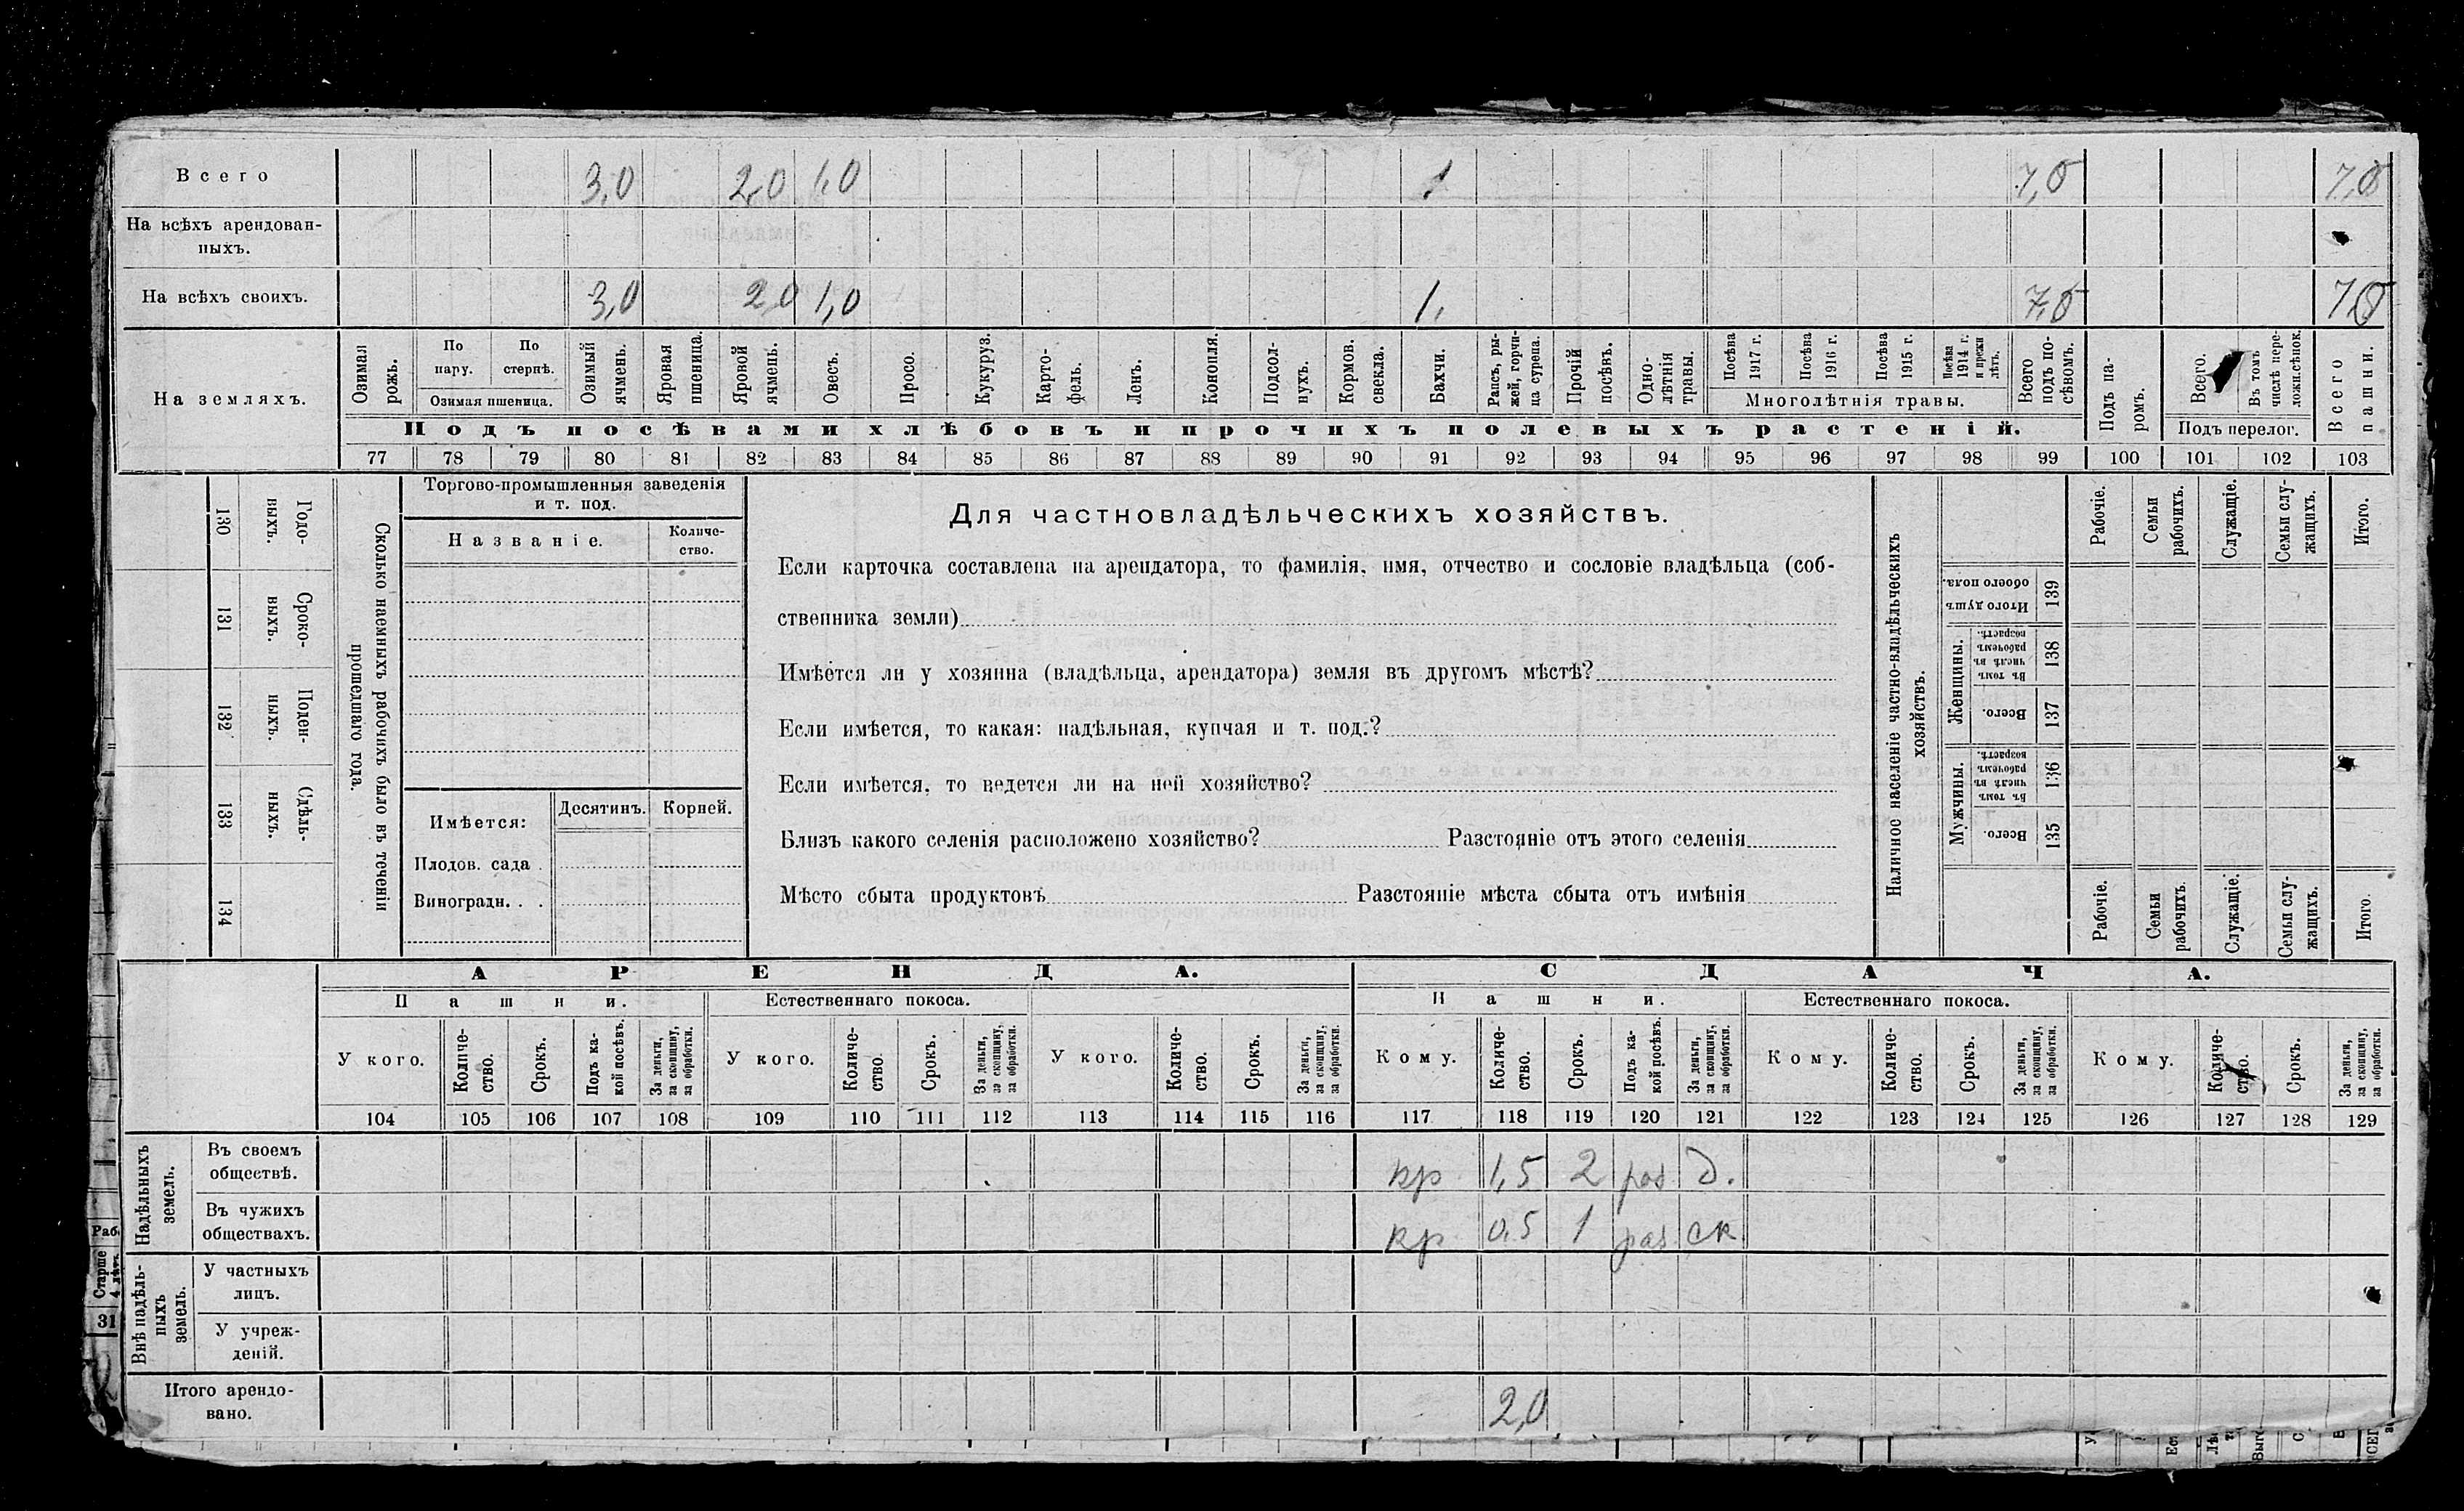 Всего 3,0 2,0 1,0 1 7,0 7,0
На всѣхъ арендован-
ныхъ.
На всѣхъ своихъ. 3,0 2,0 1,0 1, 7,0 7,0
На земляхъ.
Озимая рожь.
По пару.
По стернѣ.
Озимая пшеница.
Озимый ячмень.
Яровая пшеница.
Яровой ячмень.
Овесъ.
Просо.
Кукуруз.
Карто-
фель.
Ленъ.
Конопля.
Подсол-
нухъ.
Кормов. свекла.
Бахчи.
Рапсъ, ры-
жей, горчи-
ца сурепа.
Прочій посѣвъ.
Одно-
лѣтнія травы.
Посѣва 1917 г.
Посѣва 1916 г.
Посѣва 1915 г.
Посѣва 1914 г. и прежн лѣтъ.
Многолѣтнія травы.
Всего подъ по-
сѣвомъ.
Подъ па-
ромъ.
Всего.
Въ томъ числѣ пере-
ложн.сѣнок.
Подъ перелог.
Всего пашни.
Подъ посѣвами хлѣбовъ и прочихъ полевыхъ растеній.
77 78 79 80 81 82 83 84 85 86 87 88 89 90 91 92 93 94 95 96 97 98 99 100 101 102 103
130 Годо-
выхъ.
131 Сроко-
выхъ.
132 Поден-
ныхъ.
133 Сдѣль-
ныхъ.
134
Сколько наемныхъ рабочихъ было въ теченіи
прошедшаго года.
Торгово-промышленныя заведенія
и т. под.
Названіе.
Количе-
ство.
Имѣется: Десятинъ. Корней.
Плодов. сада .
Виноградн. . .
Для частновладѣльческихъ хозяйствъ.
Если карточка составлена на арендатора, то фамилія, имя, отчество и сословіе владѣльца (соб-
ственника земли)
Имѣется ли у хозяина (владѣльца, арендатора) земля въ другомъ мѣстѣ?
Если имѣется, то какая: надѣльная, купчая и т. под.?
Если имѣется, то ведется ли на ней хозяйство?
Близъ какого селенія расположено хозяйство? Разстояніе отъ этого селенія
Мѣсто сбыта продуктовъ Разстояніе мѣста сбыта отъ имѣнія
Наличное населеніе частно-владѣльческихъ
хозяйствъ.
Рабочіе.
Семьи рабочихъ.
Служащіе.
Семьи слу-
жащихъ.
Итого.
Итого душъ обоего пола. 139
Женщины.
Въ томъ числѣ въ рабочемъ возрастѣ. 138
Всего. 137
Мужчины.
Въ томъ числѣ въ рабочемъ возрастѣ. 136
Всего. 135
Рабочіе.
Семьи рабочихъ.
Служащіе.
Семьи слу-
жащихъ.
Итого.
АРЕНДА. СДАЧА.
Пашни. Естественнаго покоса. Пашни. Естественнаго покоса.
У кого.
Количе-
ство.
Срокъ.
Подъ ка-
кой посѣвъ.
За деньги, за скопщину, за обработки.
У кого.
Количе-
ство.
Срокъ.
За деньги, за скопщину, за обработки.
У кого.
Количе-
ство.
Срокъ.
За деньги, за скопщину, за обработки.
Кому.
Количе-
ство.
Срокъ.
Подъ ка-
кой посѣвъ.
За деньги, за скопщину, за обработки.
Кому.
Количе-
ство.
Срокъ.
За деньги, за скопщину, за обработки.
Кому.
Количе-
ство.
Срокъ.
За деньги, за скопщину, за обработки.
104 105 106 107 108 109 110 111 112 113 114 115 116 117 118 119 120 121 122 123 124 125 126 127 128 129
Надѣльныхъ
земель.
Въ своемъ
обществѣ. кр 1,5 2 раз д.
Въ чужихъ
обществахъ. кр 0,5 1 раз ск
Внѣ надѣль-
ныхъ
земель.
У частныхъ
лицъ.
У учреж-
деній.
Итого арендо-
вано. 2,0
Старше
31